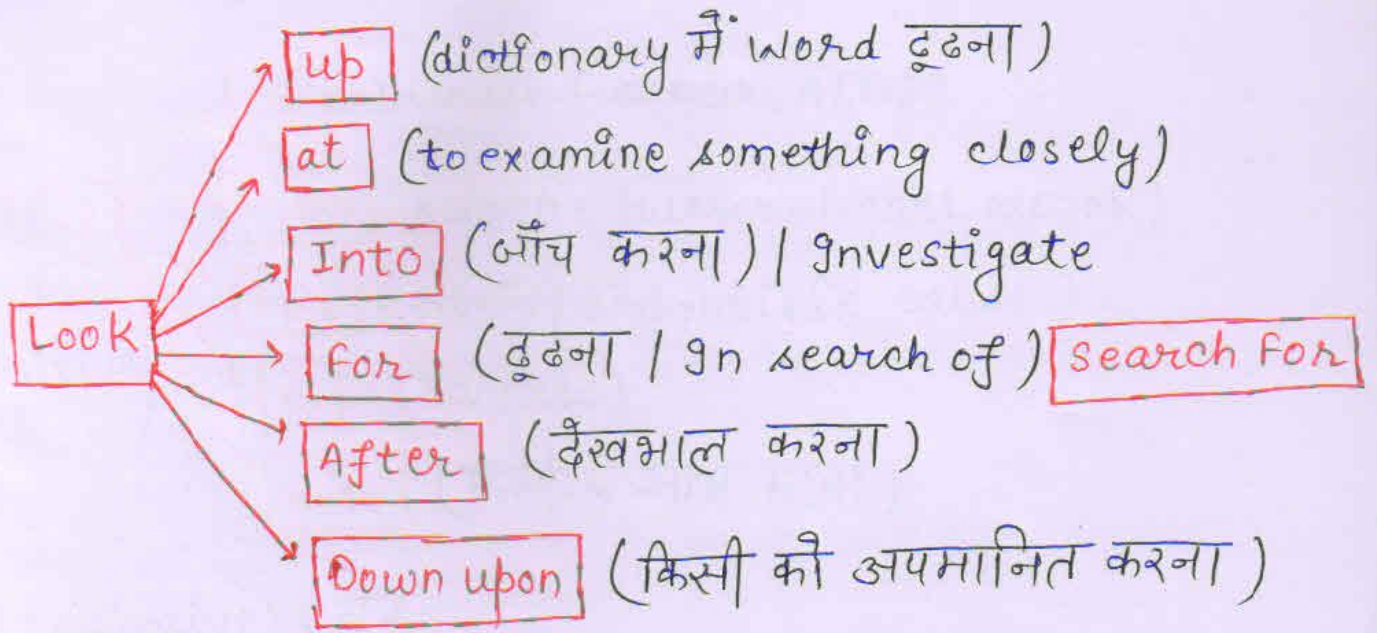 up (dictionary में word ढूढना)
at (to examine something closely)
Into (जाँच करना) | Investigate
Look
For (ढूढना | In search of) Search For
After (देखभाल करना)
Down upon (किसी को अपमानित करना)